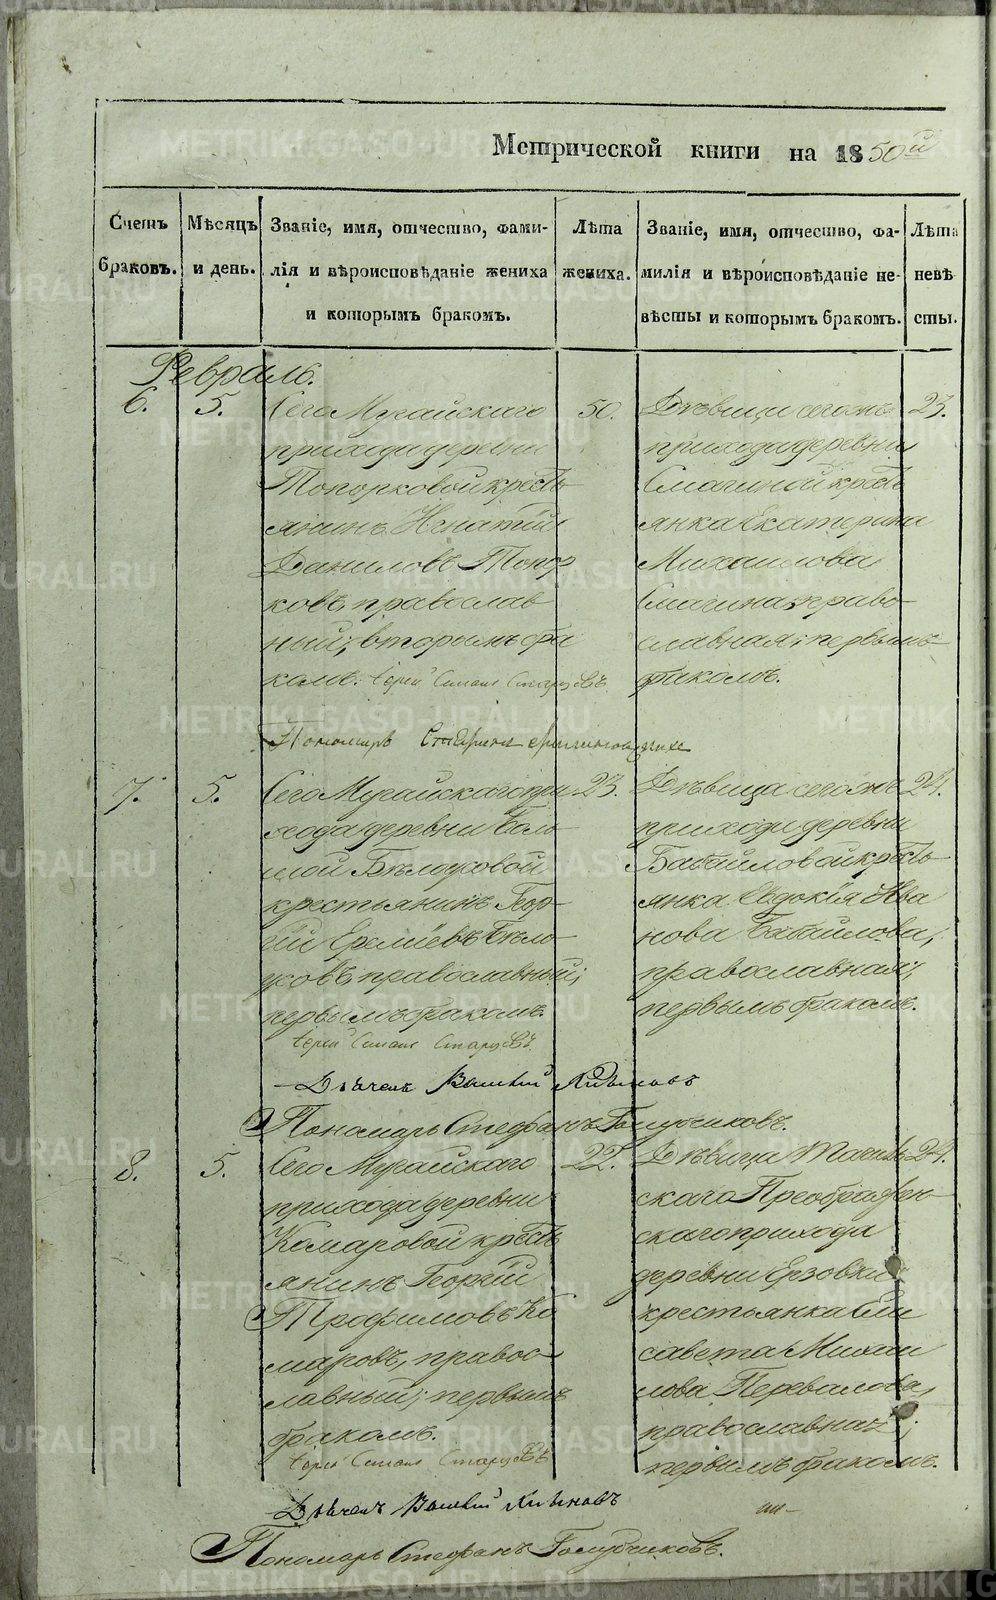 Метрической книги на 1850й
Счетъ браковъ.
Мѣсяцъ и день.
Званіе, имя, отчество, фами-
лія и вѣроисповѣданіе жениха
и которымъ бракомъ.
Лѣта жениха.
Званіе, имя, отчество, фа-
милія и вѣроисповѣданіе не-
вѣсты и которымъ бракомъ.
Лѣта невѣ
сты.
Февраль.
6.
5.
Сего Мугайскаго
прихода деревни
Топорковой кресть
янинъ Игнатій
Даниловъ Топор
ковъ, православ
ный; вторымъ бра
комъ.
50.
Дѣвица сегожъ
прихода деревни
Смагиной кресть
янка Екатерина
Михаилова
Смагина, право-
славная; первымъ
бракомъ.
23.
Іерей Симеонъ
Пономарь
7.
5.
Сего Мугайскаго при
хода деревни Боль-
шой Бѣлоусовой
крестьянинъ Геор-
гій Еремѣевъ Бѣло-
усовъ, православный;
первымъ бракомъ.
23.
Дѣвица сегожъ
прихода деревни
Бабаиловой кресть-
янка Евдокія Ива
нова Бабаилова,
православная;
первымъ бракомъ.
24.
Іерей Симеонъ
Дьячекъ Василій
Пономарь Стефанъ Голубчиковъ.
8.
5.
Сего Мугайскаго
прихода деревни
Комаровой кресть
янинъ Георгій
Трофимовъ Ко
маровъ, правос-
лавный; первымъ
бракомъ.
22.
Дѣвица Тагиль
скаго Преображен-
скаго прихода
деревни Ерзовки
крестьянка Ели
савета Михаи
лова Перевалова,
православная;
первымъ бракомъ.
24.
Іерей Симеонъ
Дьячекъ Василій
Пономарь Стефанъ Голубчиковъ.
METRIKI.GASO-URAL.RU